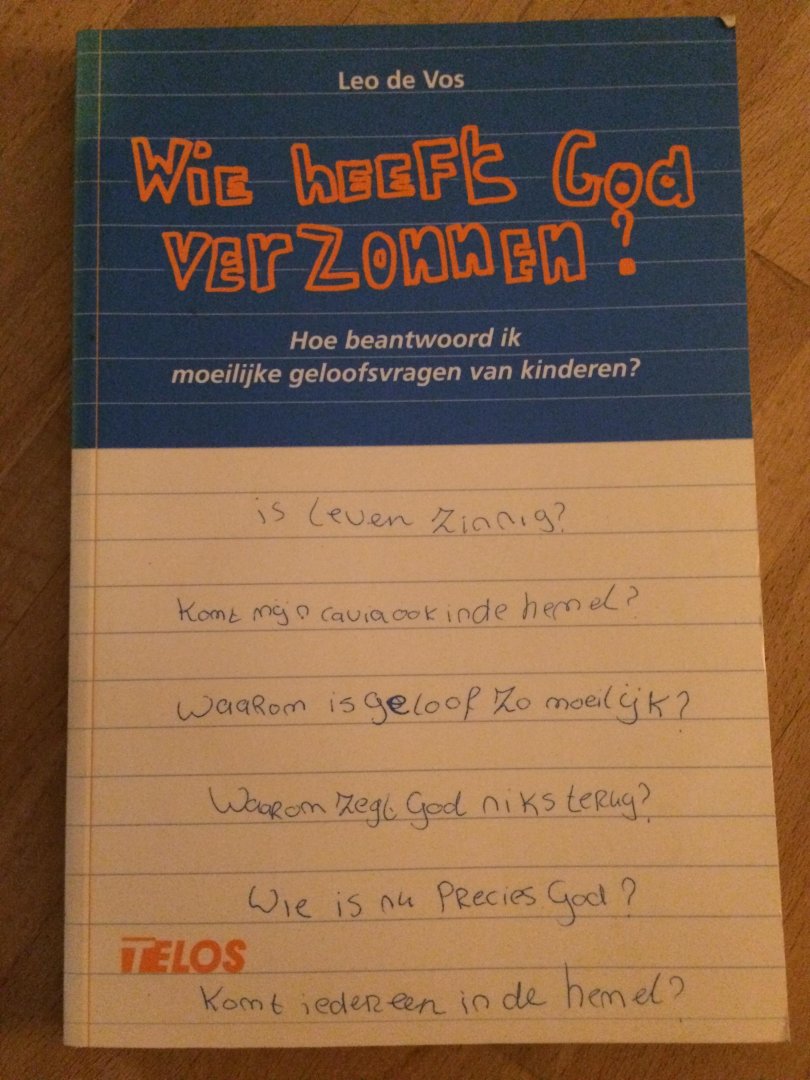 Leo de Vos
Wie heeft God
verzonnen?
Hoe beantwoord ik
moeilijke geloofsvragen van kinderen?
is leven zinnig?
Komt mijn cavia ook in de hemel?
Waarom is geloof zo moeilijk?
Waarom zegt God niks terug?
Wie is nu precies God?
TELOS
Komt iedereen in de hemel?